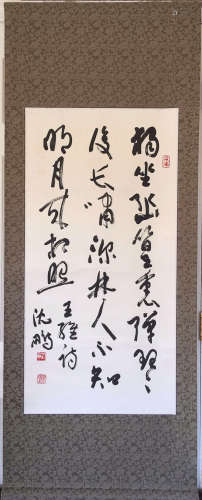 獨坐幽篁裏彈琴
復長嘯深林人不知
明月來相照
王維詩
沈鵬